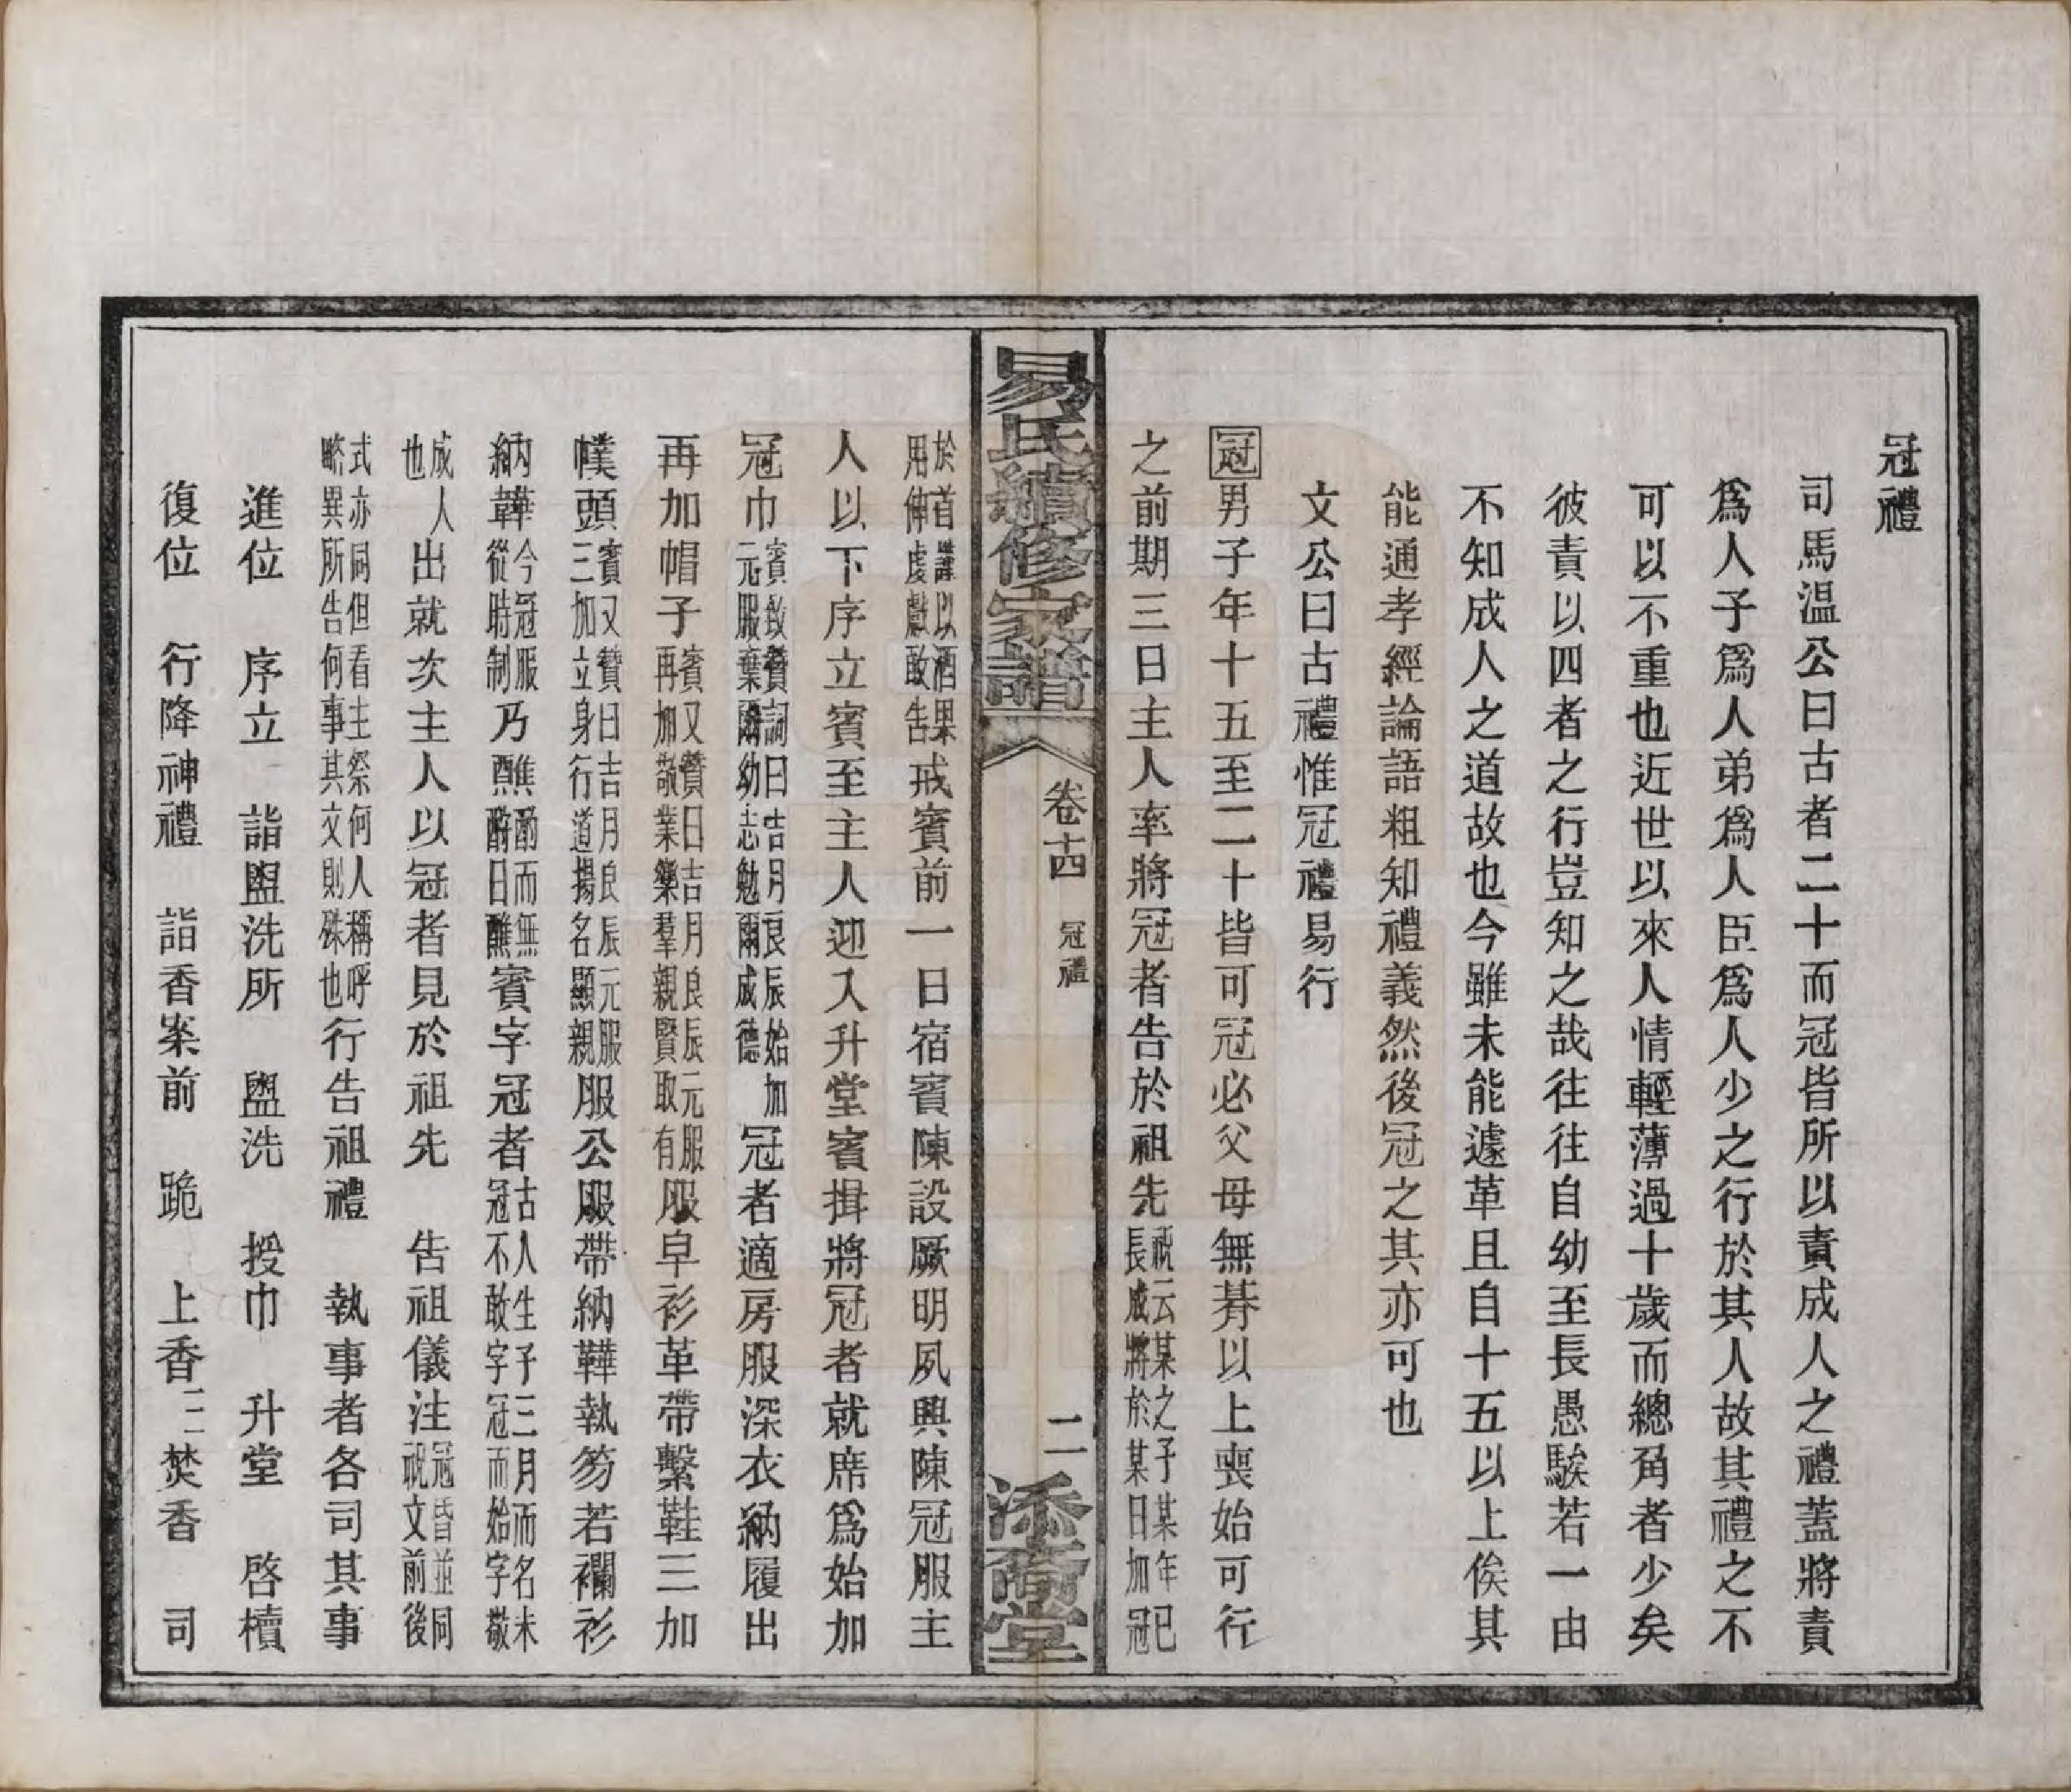 冠禮
司馬温公曰古者二十而冠皆所以責成人之禮蓋將責
爲人子爲人弟爲人臣爲人少之行於其人故其禮之不
可以不重也近世以來人情輕薄過十歲而總角者少矣
彼責以四者之行豈知之哉往往自幼至長愚騃若一由
不知成人之道故也今雖未能遽革且自十五以上俟其
能通孝經論語粗知禮義然後冠之其亦可也
文公曰古禮惟冠禮易行
冠男子年十五至二十皆可冠必父母無朞以上喪始可行
之前期三日主人率將冠者告於祖先祝云某之子某年已長成將於某日加冠
於首謹以酒果用伸虔獻敢告戒賓前一日宿賓陳設厥明夙興陳冠服主
人以下序立賓至主人迎入升堂賓揖將冠者就席爲始加
冠巾賓致贊詞曰吉月良辰始加元服棄爾幼志勉爾成德冠者適房服深衣納履出
再加帽子賓又贊曰吉月良辰元服再加敬業樂羣親賢取有服皁衫革帶繫鞋三加
幞頭賓又贊曰吉月良辰元服三加立身行道揚名顯親服公服帶納鞾執笏若襴衫
納鞾今冠服從時制乃醮酌而無酧曰醮賓字冠者古人生子三月而名未冠不敢字冠而始字敬
成人也出就次主人以冠者見於祖先　告祖儀注冠昏並同祝文前後
式亦同但看主祭何人稱呼略異所告何事其文則殊也行告祖禮　執事者各司其事
進位　序立　詣盥洗所　盥洗　授巾　升堂　啓櫝
復位　行降神禮　詣香案前　跪　上香三焚香　司
易氏續修家譜
卷十四　冠禮
二
添商堂